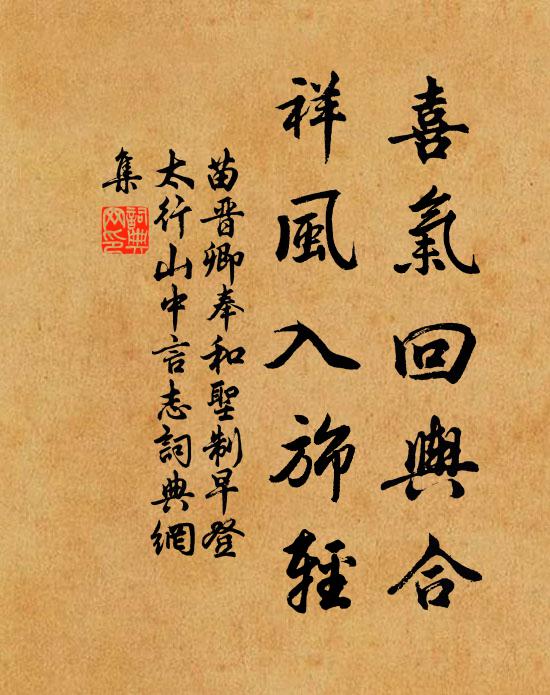 喜氣回輿合
祥風入旆輕
苗晋卿奉和聖制早登
太行山中言志詞典網
集
詞典
網印